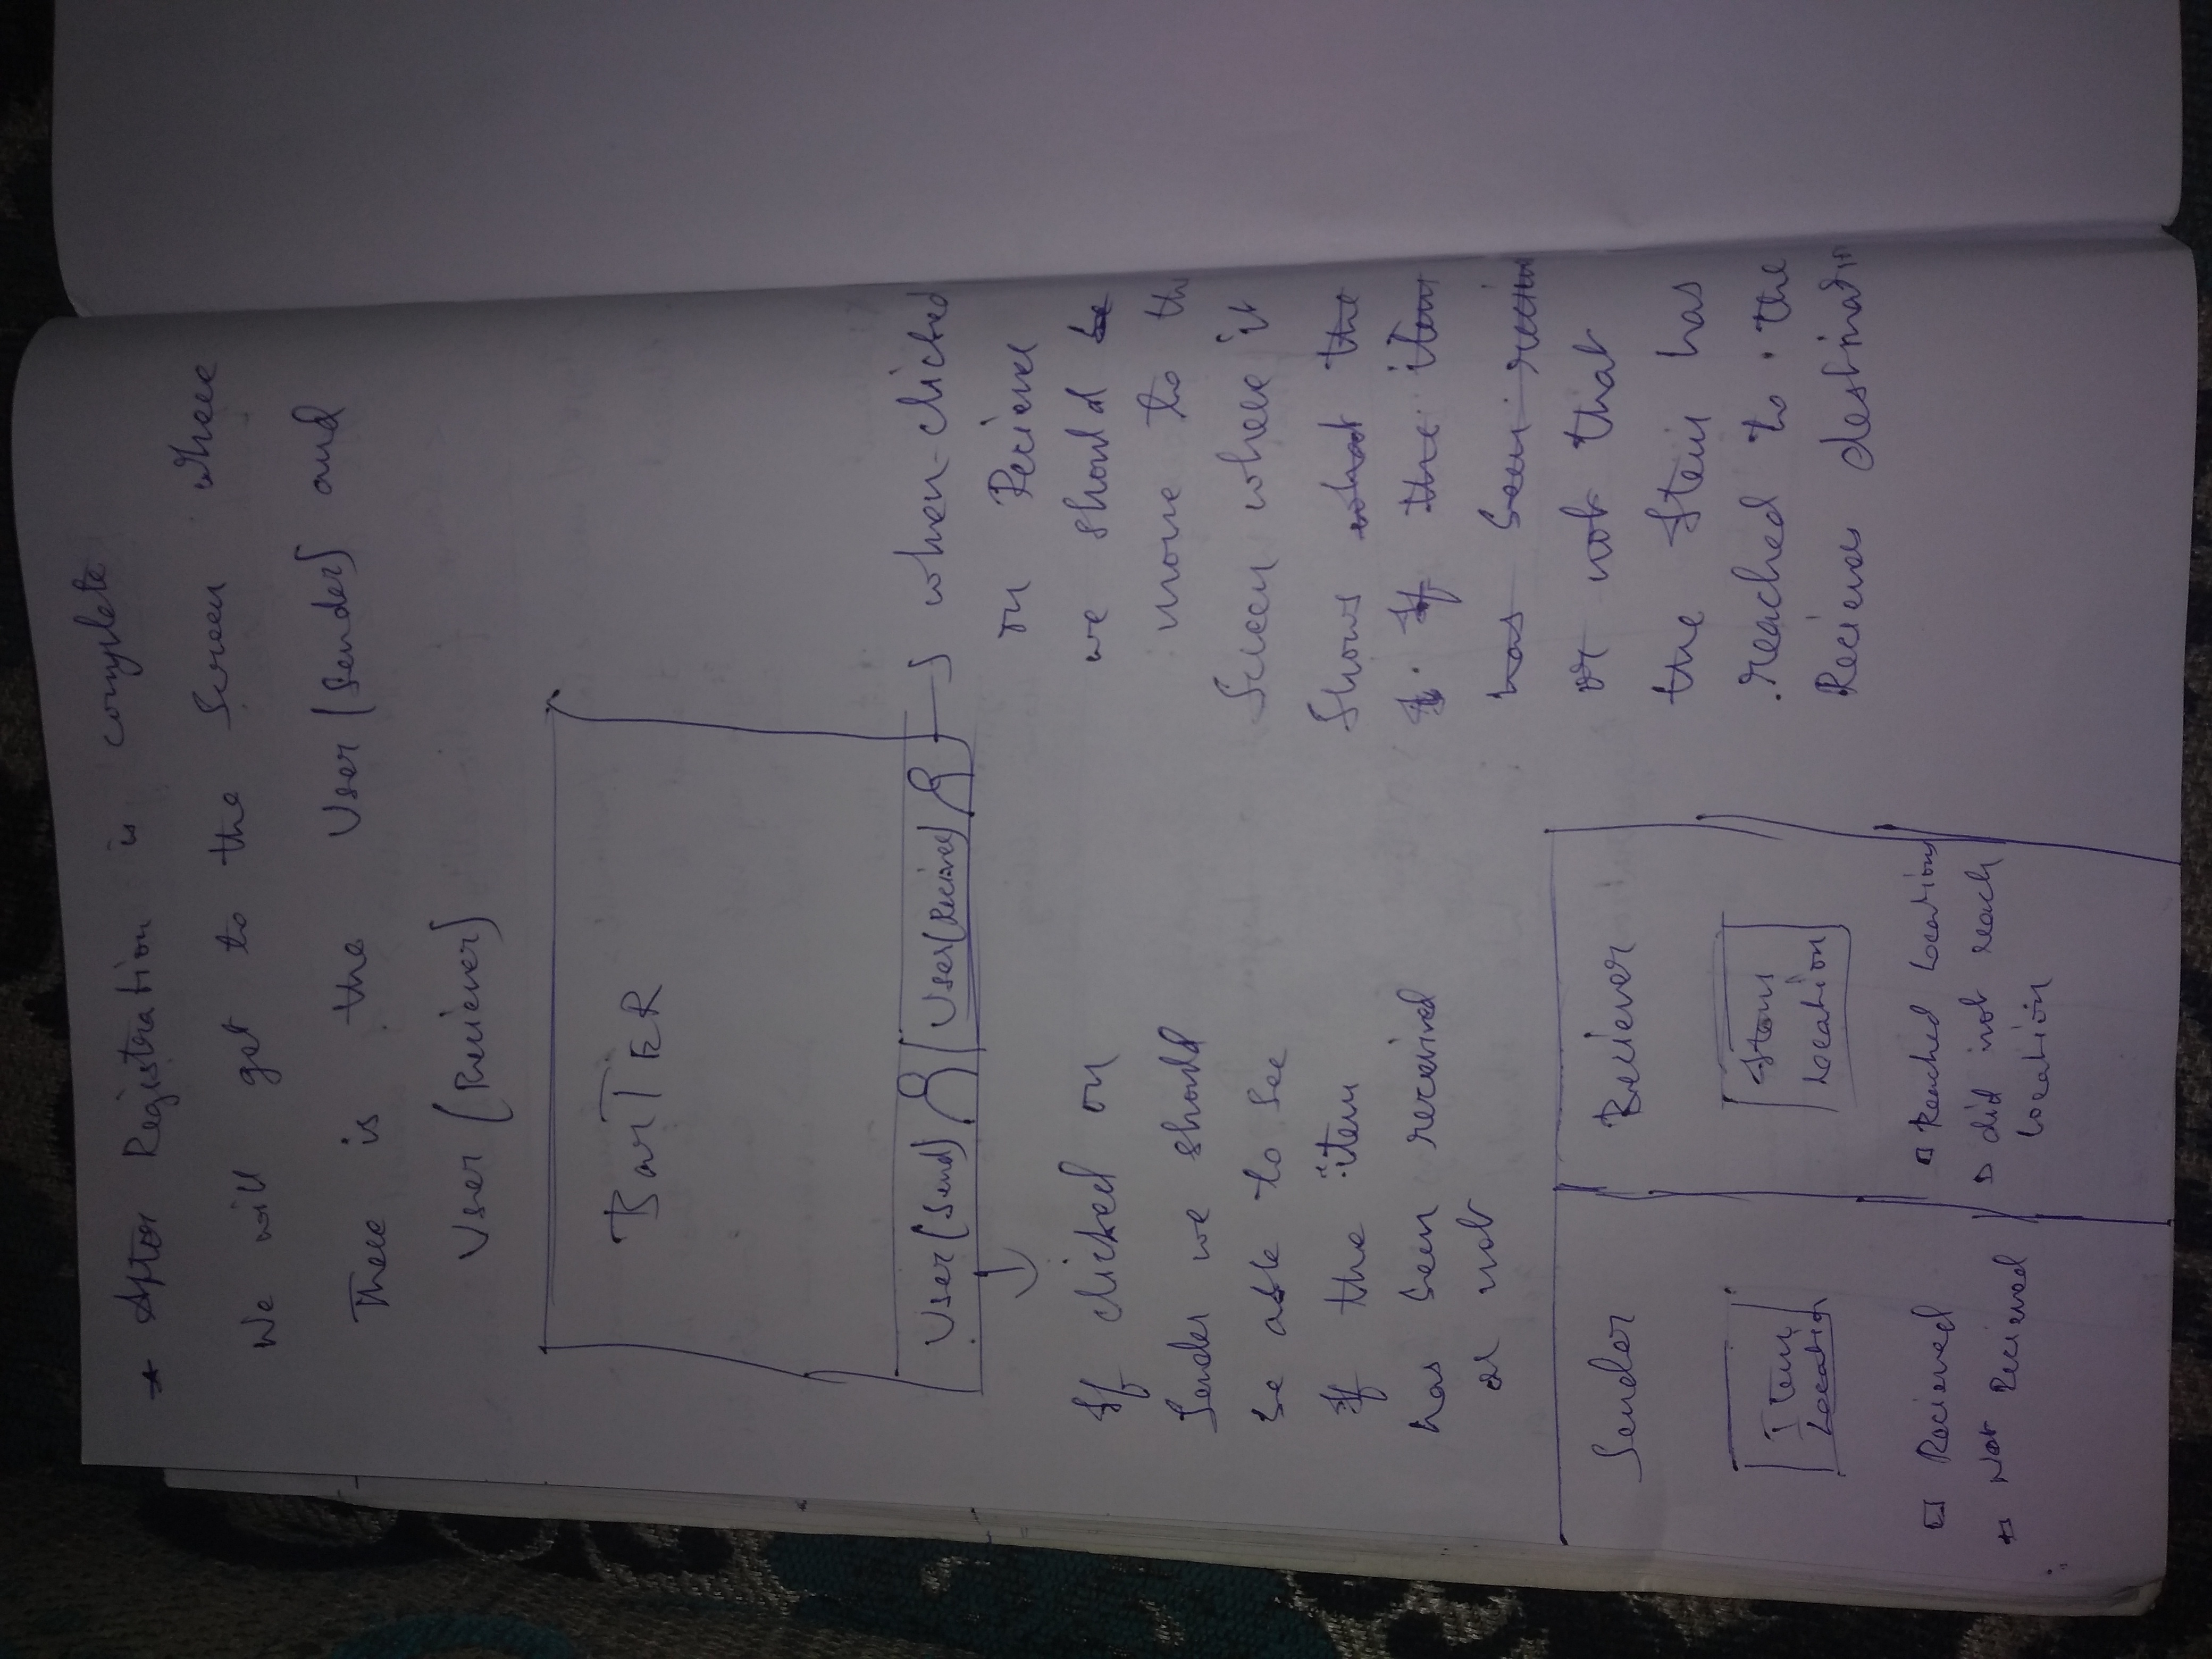 * After Registration is complete
We will get to the Screen where
There is the User (Sender) and
User (Reciever)
BarTER
User (Send)
User (Recieved)
If clicked on
Sender we should
be able to see
If the item
has been received
or not
when clicked
on Reciever
we should be
move to the
Screen where it
Shows what the
If the item
has been
or not that
the Item has
reached to the
Recievers
Sender
Item
Location
Recieved
Not Recieved
Reciever
Item
Location
Reached Locations
did not reach
location